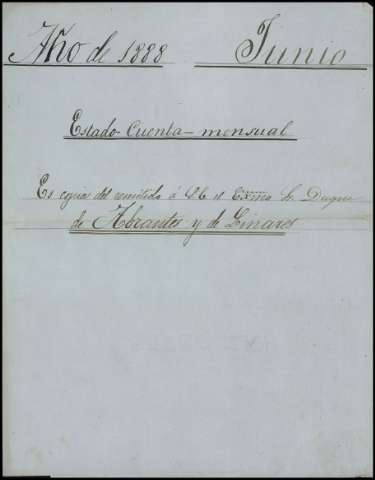 Año de 1888 Junio
Estado-Cuenta-mensual
Es copia del remitido á S.E. el Exmo Sr. Duque
de Abrantes y de Linares